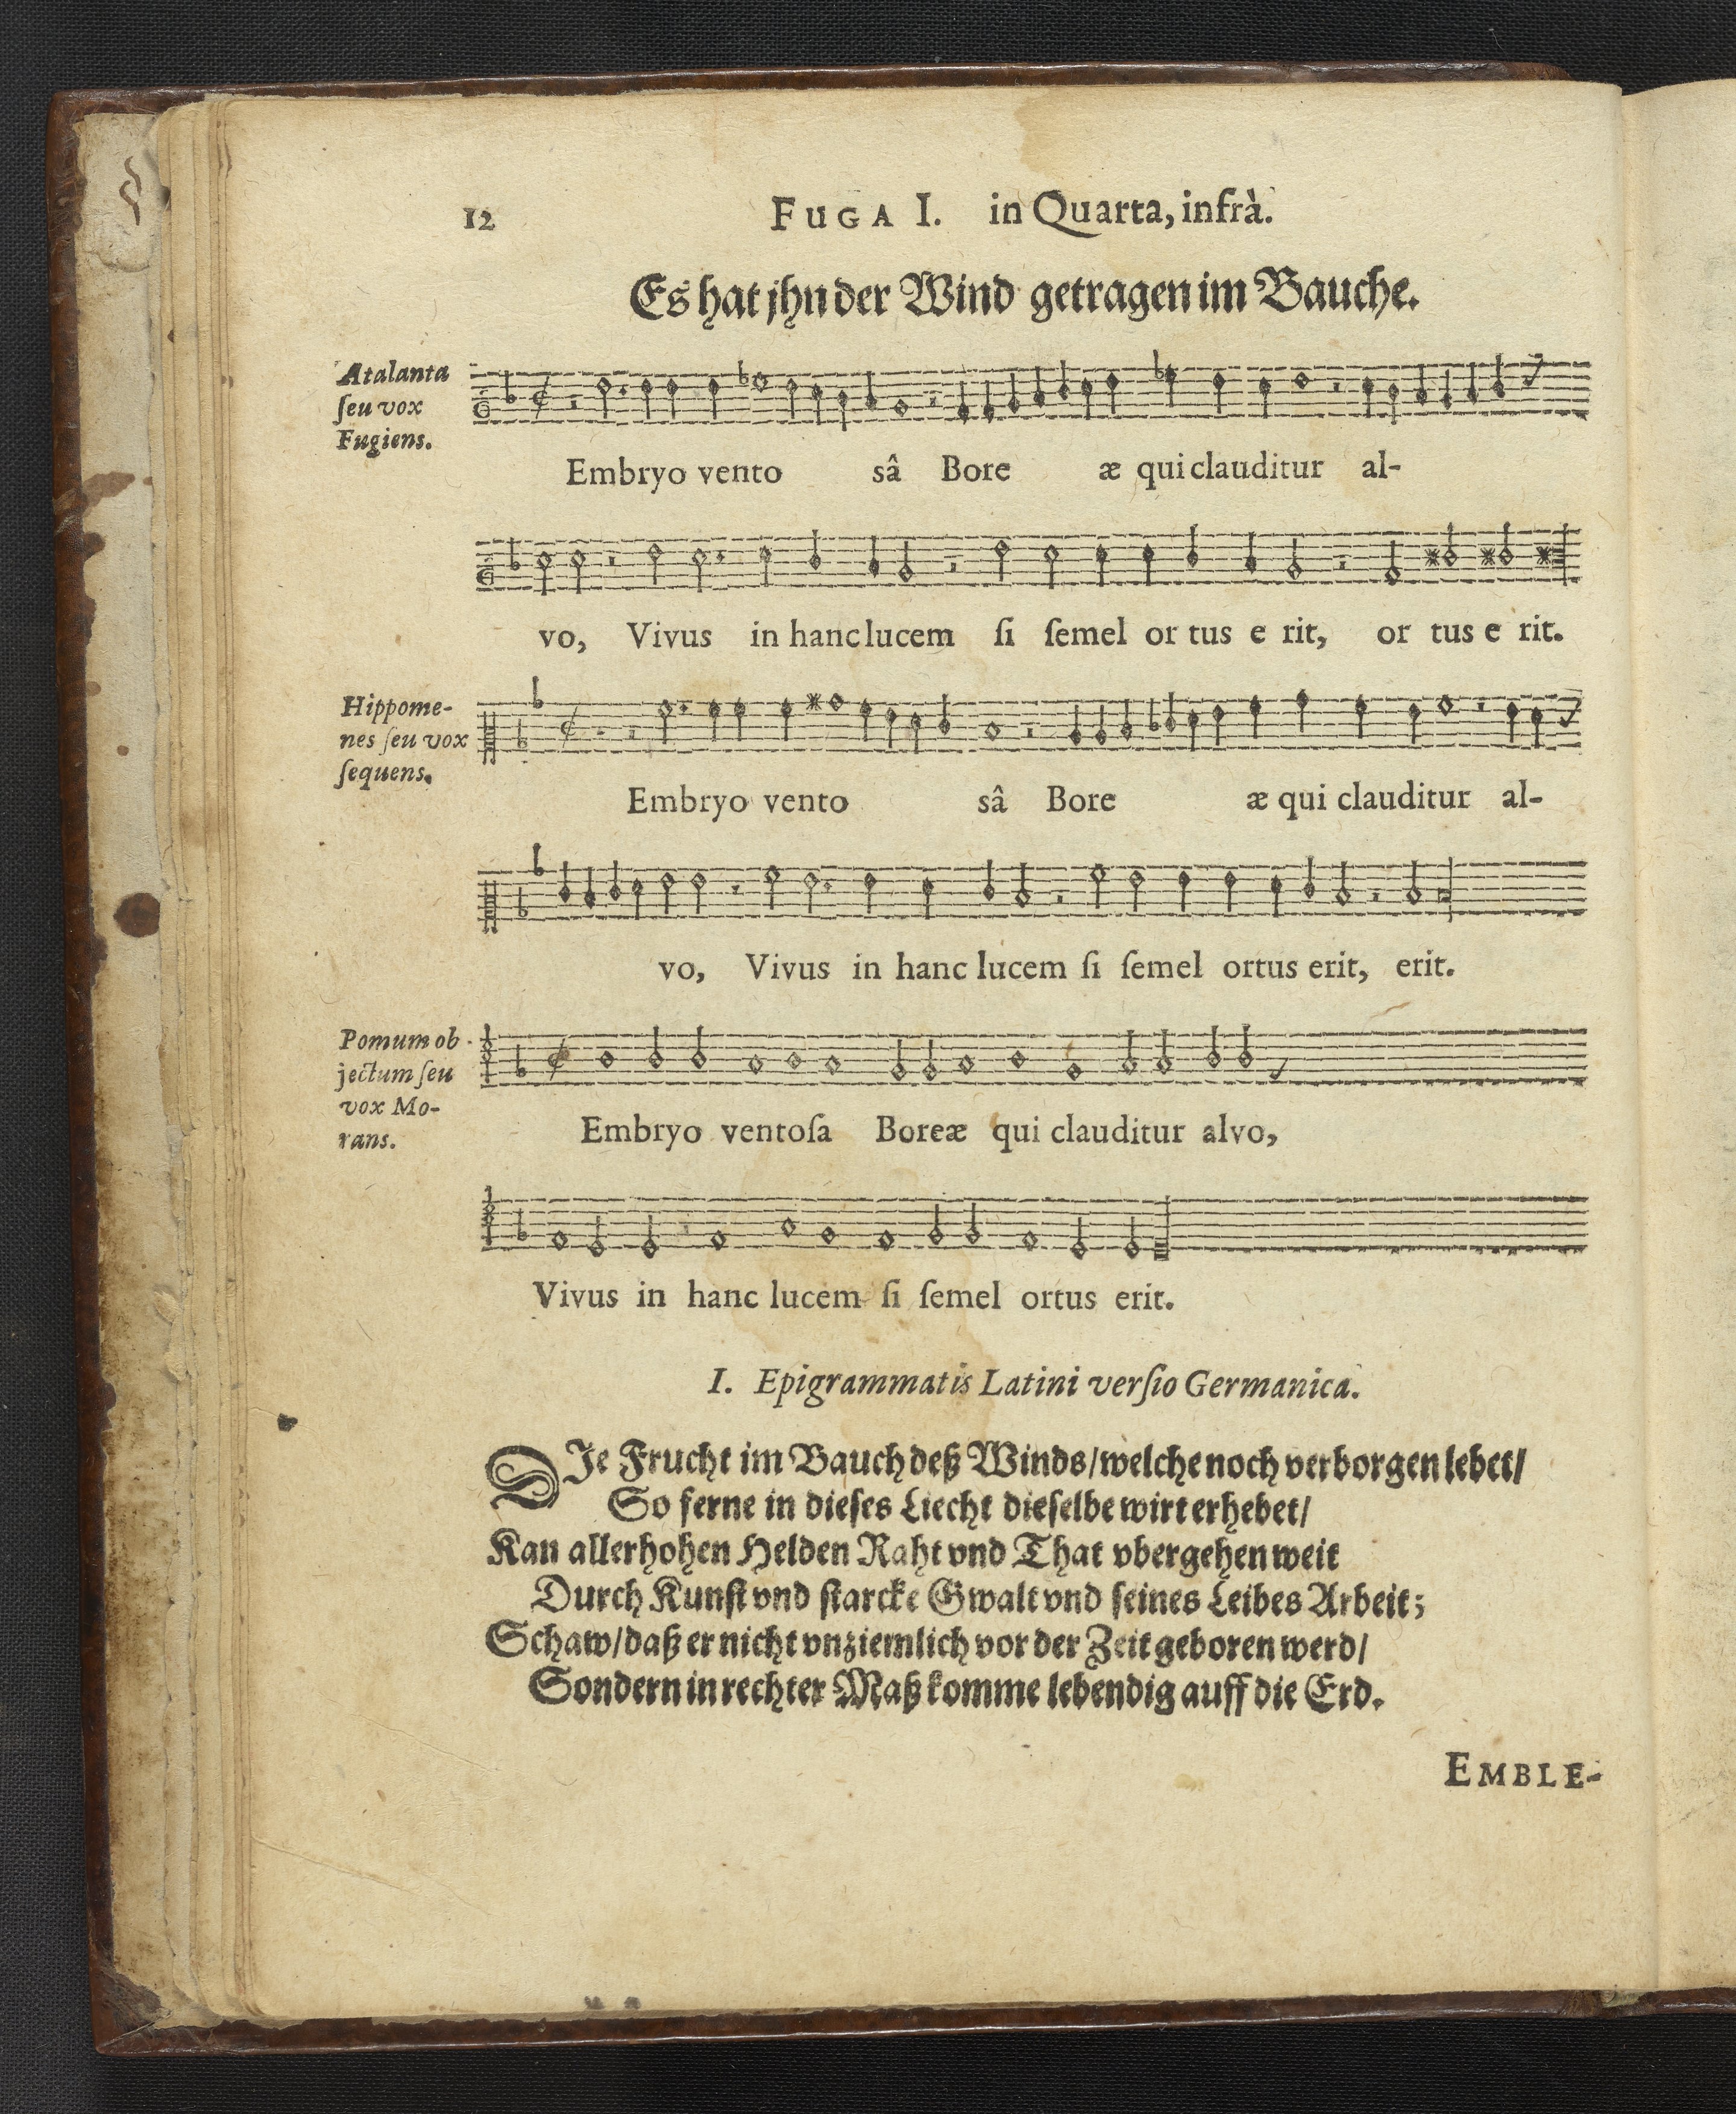 12 FUGA I. in Quarta, infrà.
Es hat jhn der Wind getragen im Bauche.
Atalanta
ſeu vox
Fugiens.
Embryo vento sâ Bore æ qui clauditur al-
vo, Vivus in hanc lucem ſi ſemel or tus e rit, or tus e rit.
Hippome-
nes ſeu vox
ſequens.
Embryo vento sâ Bore æ qui clauditur al-
vo, Vivus in hanc lucem ſi ſemel ortus erit, erit.
Pomum ob-
jectum ſeu
vox Mo-
rans.
Embryo ventoſa Boreæ qui clauditur alvo,
Vivus in hanc lucem ſi ſemel ortus erit.
I. Epigrammatis Latini verſio Germanica.
DJe Frucht im Bauch deß Winds/ welche noch verborgen lebet/
So ferne in dieſes Liecht dieſelbe wirt erhebet/
Kan aller hohen Helden Raht vnd That vbergehen weit
Durch Kunſt vnd ſtarcke Gwalt vnd ſeines Leibes Arbeit;
Schaw/ daß er nicht vnziemlich vor der Zeit geboren werd/
Sondern in rechter Maß komme lebendig auff die Erd.
EMBLE-